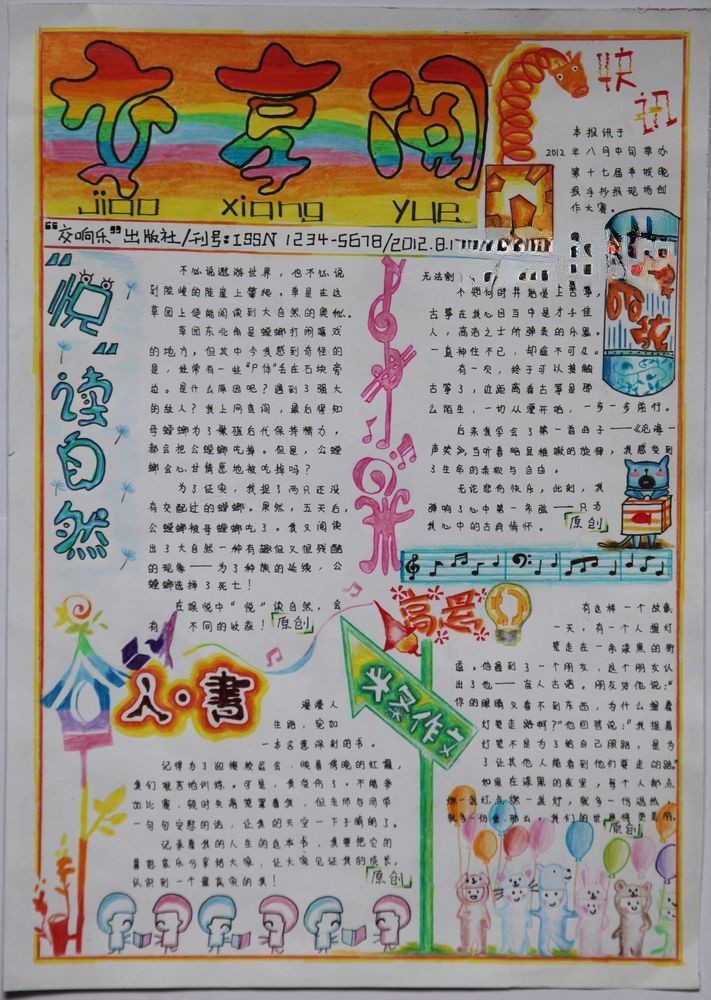 交享阅
jiao xiang yue
快讯
本报讯于
2012年八月中旬举办
第十七届羊城晚
报手抄报现场创
作大赛。
"交响乐"出版社/刊号:ISSN 1234-5678/2012.8.17
"悦"读自然
不必说遨游世界，也不必说
到险峻的陡崖上攀爬，单是在这
草园上便能阅读到大自然的奥秘。
草园东北角是螳螂打闹嬉戏
的地方，但其中令我感到奇怪的
是，她带有一些"尸体"丢在石块旁
边。是什么原因呢？遇到了强大
的敌人？我上网查询，最后得知
母螳螂为了繁殖后代保养精力，
都会把公螳螂吃掉。但是，公螳
螂会心甘情愿地被吃掉吗？
为了证实，我捉了两只还没
有交配过的螳螂。果然，五天后，
公螳螂被母螳螂吃了。我又阅读
出了大自然一种有趣但又很残酷
的现象——为了种族的延续，公
螳螂选择了死亡！
在娱悦中"悦"读自然，会
有 不同的收获！
原创
无法割
不知何时开始爱上古筝，
古筝在我心目当中是才子佳
人，高洁之士所弹奏的乐器。
一直神往不已，却遥不可及。
有一次，终于可以接触
古筝了，近距离看古筝是那
么陌生，一切从爱开始，一步一步前行。
后来我学会了第一首曲子——《沧海一
声笑》，当听着略显稚嫩的旋律，我感受到
了生命的柔软与自由。
无论悲伤快乐，此刻，我
弹响了心中第一根弦——只为
我心中的古典情怀。
原创
人·書
漫漫人
生路，宛如
一本名意深刻的书。
记得为了迎接校运会，映着傍晚的红霞，
我们艰苦地训练。可是，我负伤了。不能参
加比赛，顿时失落笼罩着我，但老师与同学
一句句安慰的话，让我的天空一下子晴朗了。
记录着我的人生的这本书，我要把它的
喜怒哀乐分享给大家，让大家见证我的成长，
认识到一个最真实的我！
原创
"高考"
头条作文
有这样一个故事
一天，有一个人提灯
笼走在一条漆黑的街
道。他遇到了一个朋友，这个朋友认
出了他——盲人古诺。朋友对他说："
你的眼睛又看不到东西，为什么提着
灯笼走路啊？"他回答说："我提着
灯笼不是为了给自己照路，是为
了让其他人能看到他们要走的路。"
如果在漆黑的夜里，每个人都点
燃一盏灯，点燃一盏灯，就多一份温热
就多一份 ，那么，我们的世界将更美丽。
原创